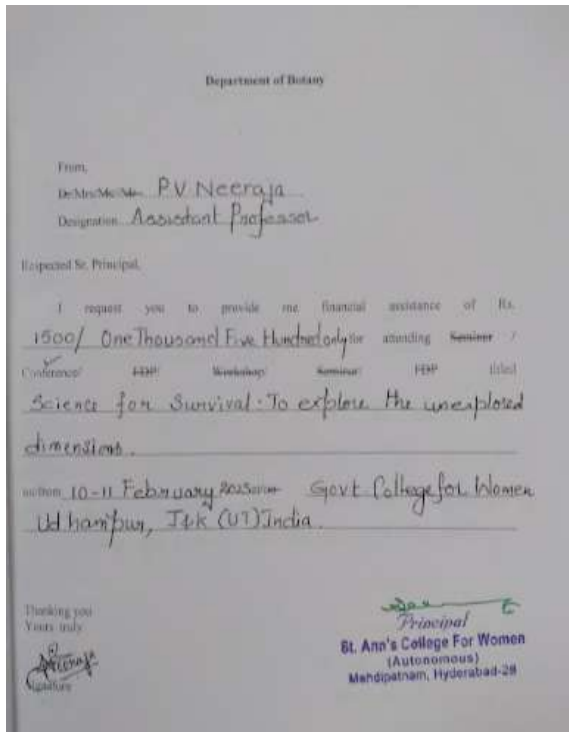 Department of Botany
From,
P.V Neeraja
Designation Assistant Professor
Respected Sr. Principal,
I request you to provide me financial assistance of Rs.
1500/ One Thousand Five Hundred only for attending Seminar /
Conference/ FDP/ Workshop/ Seminar/ FDP titled
Science for Survival. To explore the unexplored
dimensions.
on/from 10-11 February 2025 Govt College for Women
Udhampur, J&K (UT) India.
Thanking you
Yours truly
Neeraja
Signature
Principal
St. Ann's College For Women
(Autonomous)
Mehdipatnam, Hyderabad-28